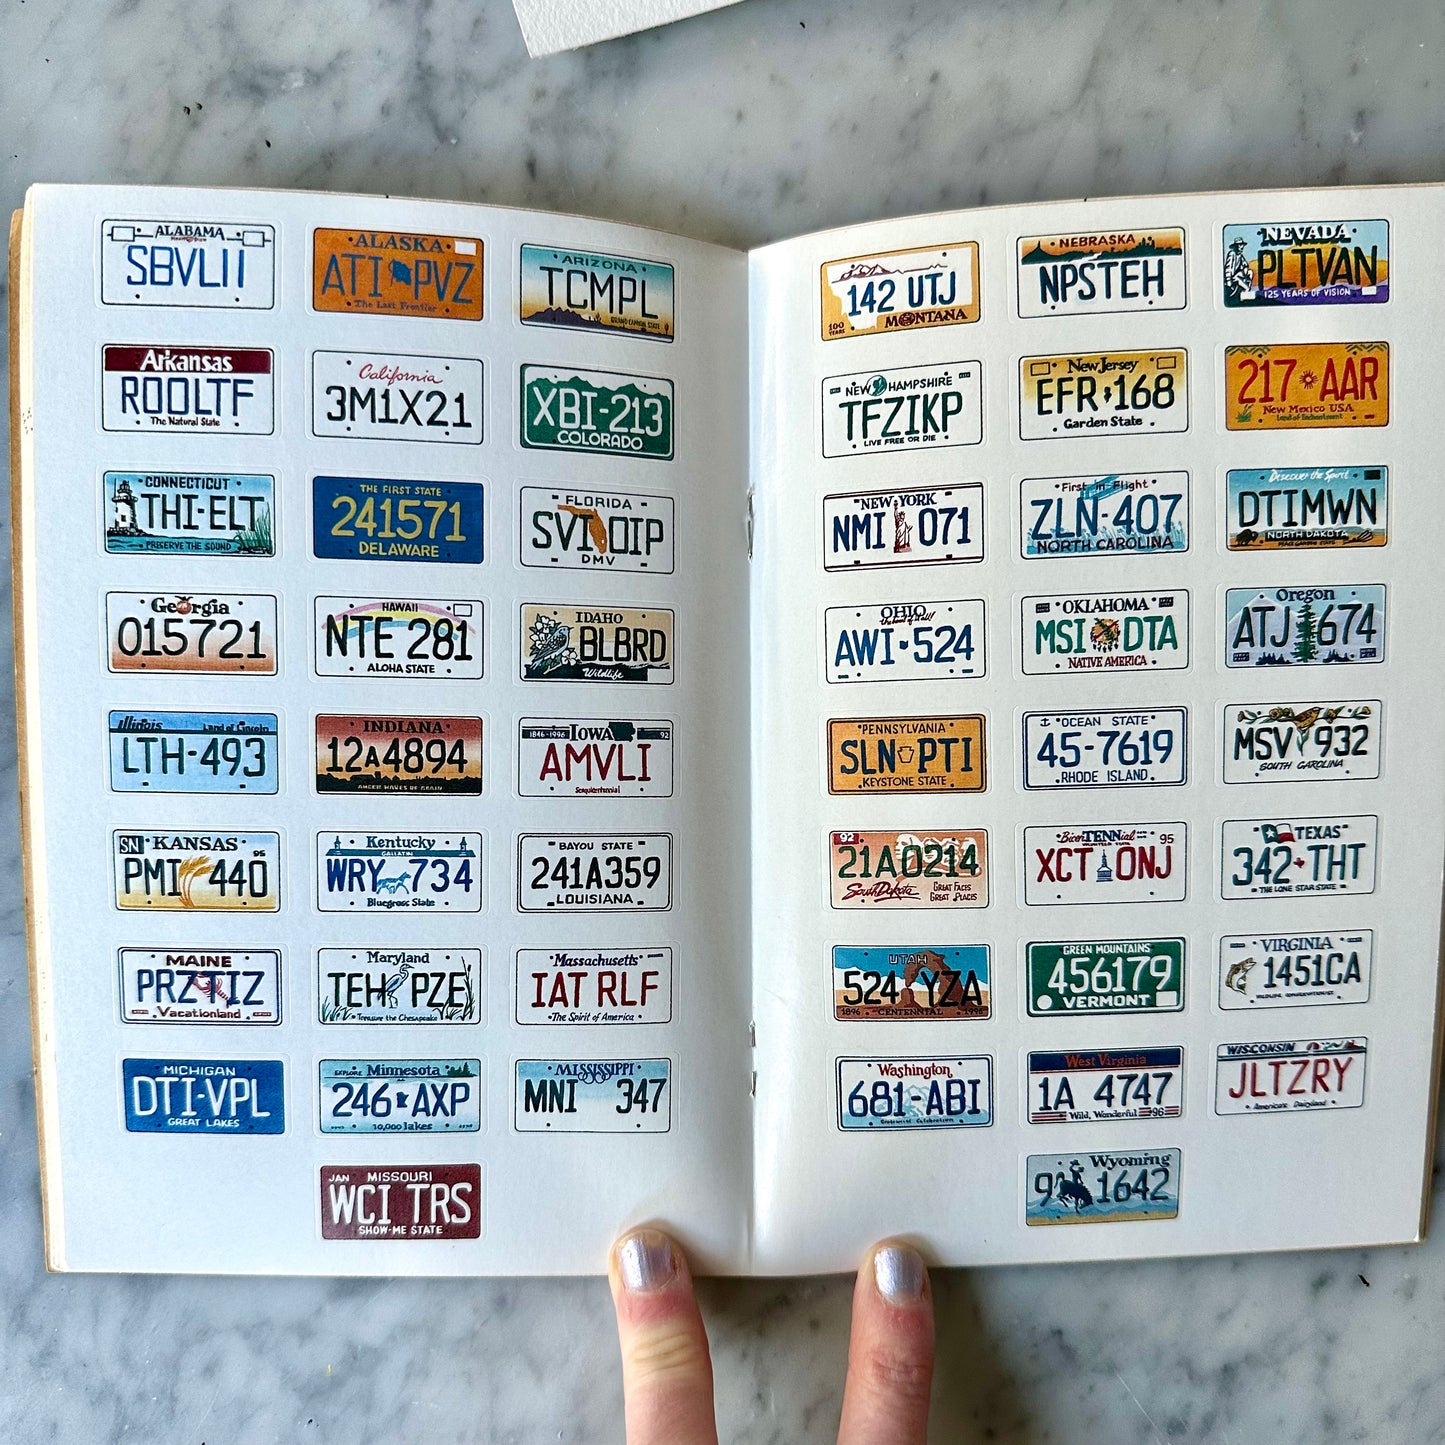 ALABAMA
SBVLII
ALASKA
ATI PVZ
The Last Frontier
ARIZONA
TCMPL
GRAND CANYON STATE
Arkansas
ROOLTF
The Natural State
California
3M1X21
XBI-213
COLORADO
CONNECTICUT
THI-ELT
PRESERVE THE SOUND
THE FIRST STATE
241571
DELAWARE
FLORIDA
SVI OIP
DMV
Georgia
015721
HAWAII
NTE 281
ALOHA STATE
IDAHO
BLBRD
Wildlife
Illinois
Land of Lincoln
LTH-493
INDIANA
12A4894
AMBER WAVES OF GRAIN
1846-1996
IOWA
92
AMVLI
Sesquicentennial
SN
KANSAS
PMI 440
Kentucky
GALLATIN
WRY 734
Bluegrass State
BAYOU STATE
241A359
LOUISIANA
MAINE
PRZ TIZ
Vacationland
Maryland
TEH PZE
Treasure the Chesapeake
Massachusetts
IAT RLF
The Spirit of America
MICHIGAN
DTI-VPL
GREAT LAKES
EXPLORE Minnesota
246 AXP
10,000 lakes
MISSISSIPPI
MNI 347
JAN MISSOURI
WCI TRS
SHOW-ME STATE
142 UTJ
100 YEARS
MONTANA
NEBRASKA
NPSTEH
NEVADA
PLTVAN
125 YEARS OF VISION
NEW HAMPSHIRE
TFZIKP
LIVE FREE OR DIE
New Jersey
EFR 168
Garden State
217 AAR
New Mexico USA
Land of Enchantment
NEW YORK
NMI 071
First in Flight
ZLN-407
NORTH CAROLINA
Discover the Spirit
DTIMWN
NORTH DAKOTA
PEACE GARDEN STATE
OHIO
the heart of it all!
AWI 524
OKLAHOMA
MSI DTA
NATIVE AMERICA
Oregon
ATJ 674
PENNSYLVANIA
SLN PTI
KEYSTONE STATE
OCEAN STATE
45-7619
RHODE ISLAND
MSV 932
SOUTH CAROLINA
92
21A0214
South Dakota
GREAT FACES
GREAT PLACES
BicenTENNial
95
VOLUNTEER STATE
XCT ONJ
TEXAS
342 THT
THE LONE STAR STATE
UTAH
524 YZA
1896 CENTENNIAL 1996
GREEN MOUNTAINS
456179
VERMONT
VIRGINIA
1451CA
WILDLIFE CONSERVATIONIST
Washington
681-ABI
Centennial Celebration
West Virginia
1A 4747
Wild, Wonderful 96
WISCONSIN
JLTZRY
America's Dairyland
Wyoming
9 1642